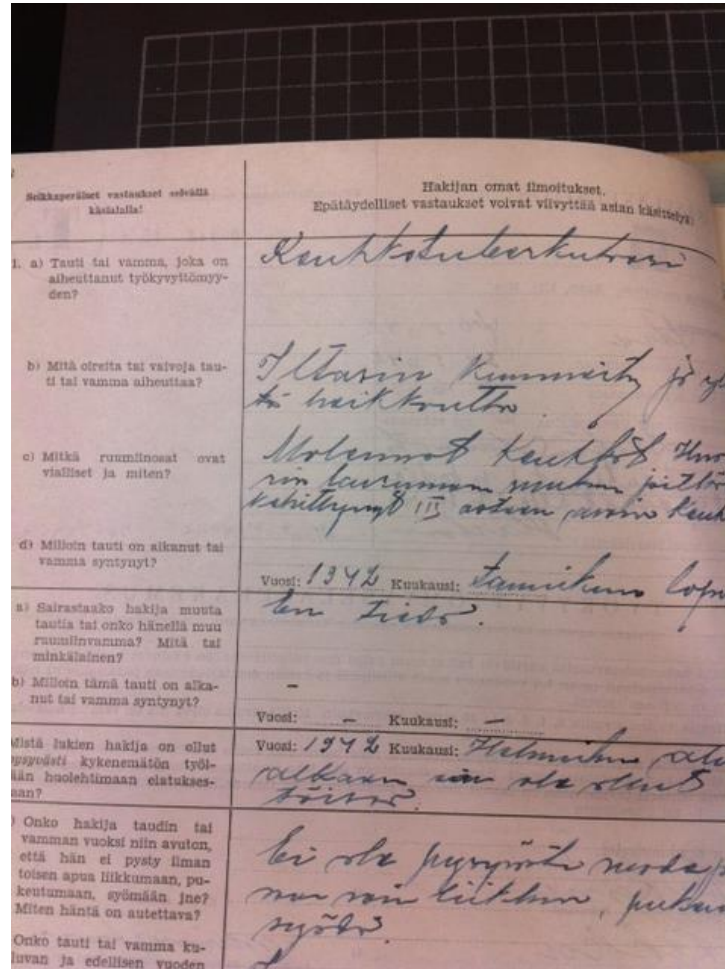 Seikkaperäiset vastaukset selvällä
käsialalla!
Hakijan omat ilmoitukset.
Epätäydelliset vastaukset voivat viivyttää asian käsittelyä.
1. a) Tauti tai vamma, joka on
aiheuttanut työkyvyttömyy-
den?
Keuhkotuberkuloosi
b) Mitä oireita tai vaivoja tau-
ti tai vamma aiheuttaa?
Iltasin kuumeity ja
tä heikkoutta.
c) Mitkä ruumiinosat ovat
vialliset ja miten?
Molemmat keuhkot
rin lausunnon mukaan
kehittynyt III asteen
d) Milloin tauti on alkanut tai
vamma syntynyt?
Vuosi: 1942 Kuukausi: Tammikuun
a) Sairastaako hakija muuta
tautia tai onko hänellä muu
ruumiinvamma? Mitä tai
minkälainen?
En tiedä.
b) Milloin tämä tauti on alka-
nut tai vamma syntynyt?
–
Vuosi: – Kuukausi: –
Mistä lukien hakija on ollut
pysyvästi kykenemätön työl-
ään huolehtimaan elatukses-
aan?
Vuosi: 1942 Kuukausi: Helmikuu
alkaen en ole ollut
töissä.
) Onko hakija taudin tai
vamman vuoksi niin avuton,
että hän ei pysty ilman
toisen apua liikkumaan, pu-
keutumaan, syömään jne?
Miten häntä on autettava?
Ei ole
voin liikkua,
syödä.
Onko tauti tai vamma ku-
luvan ja edellisen vuoden